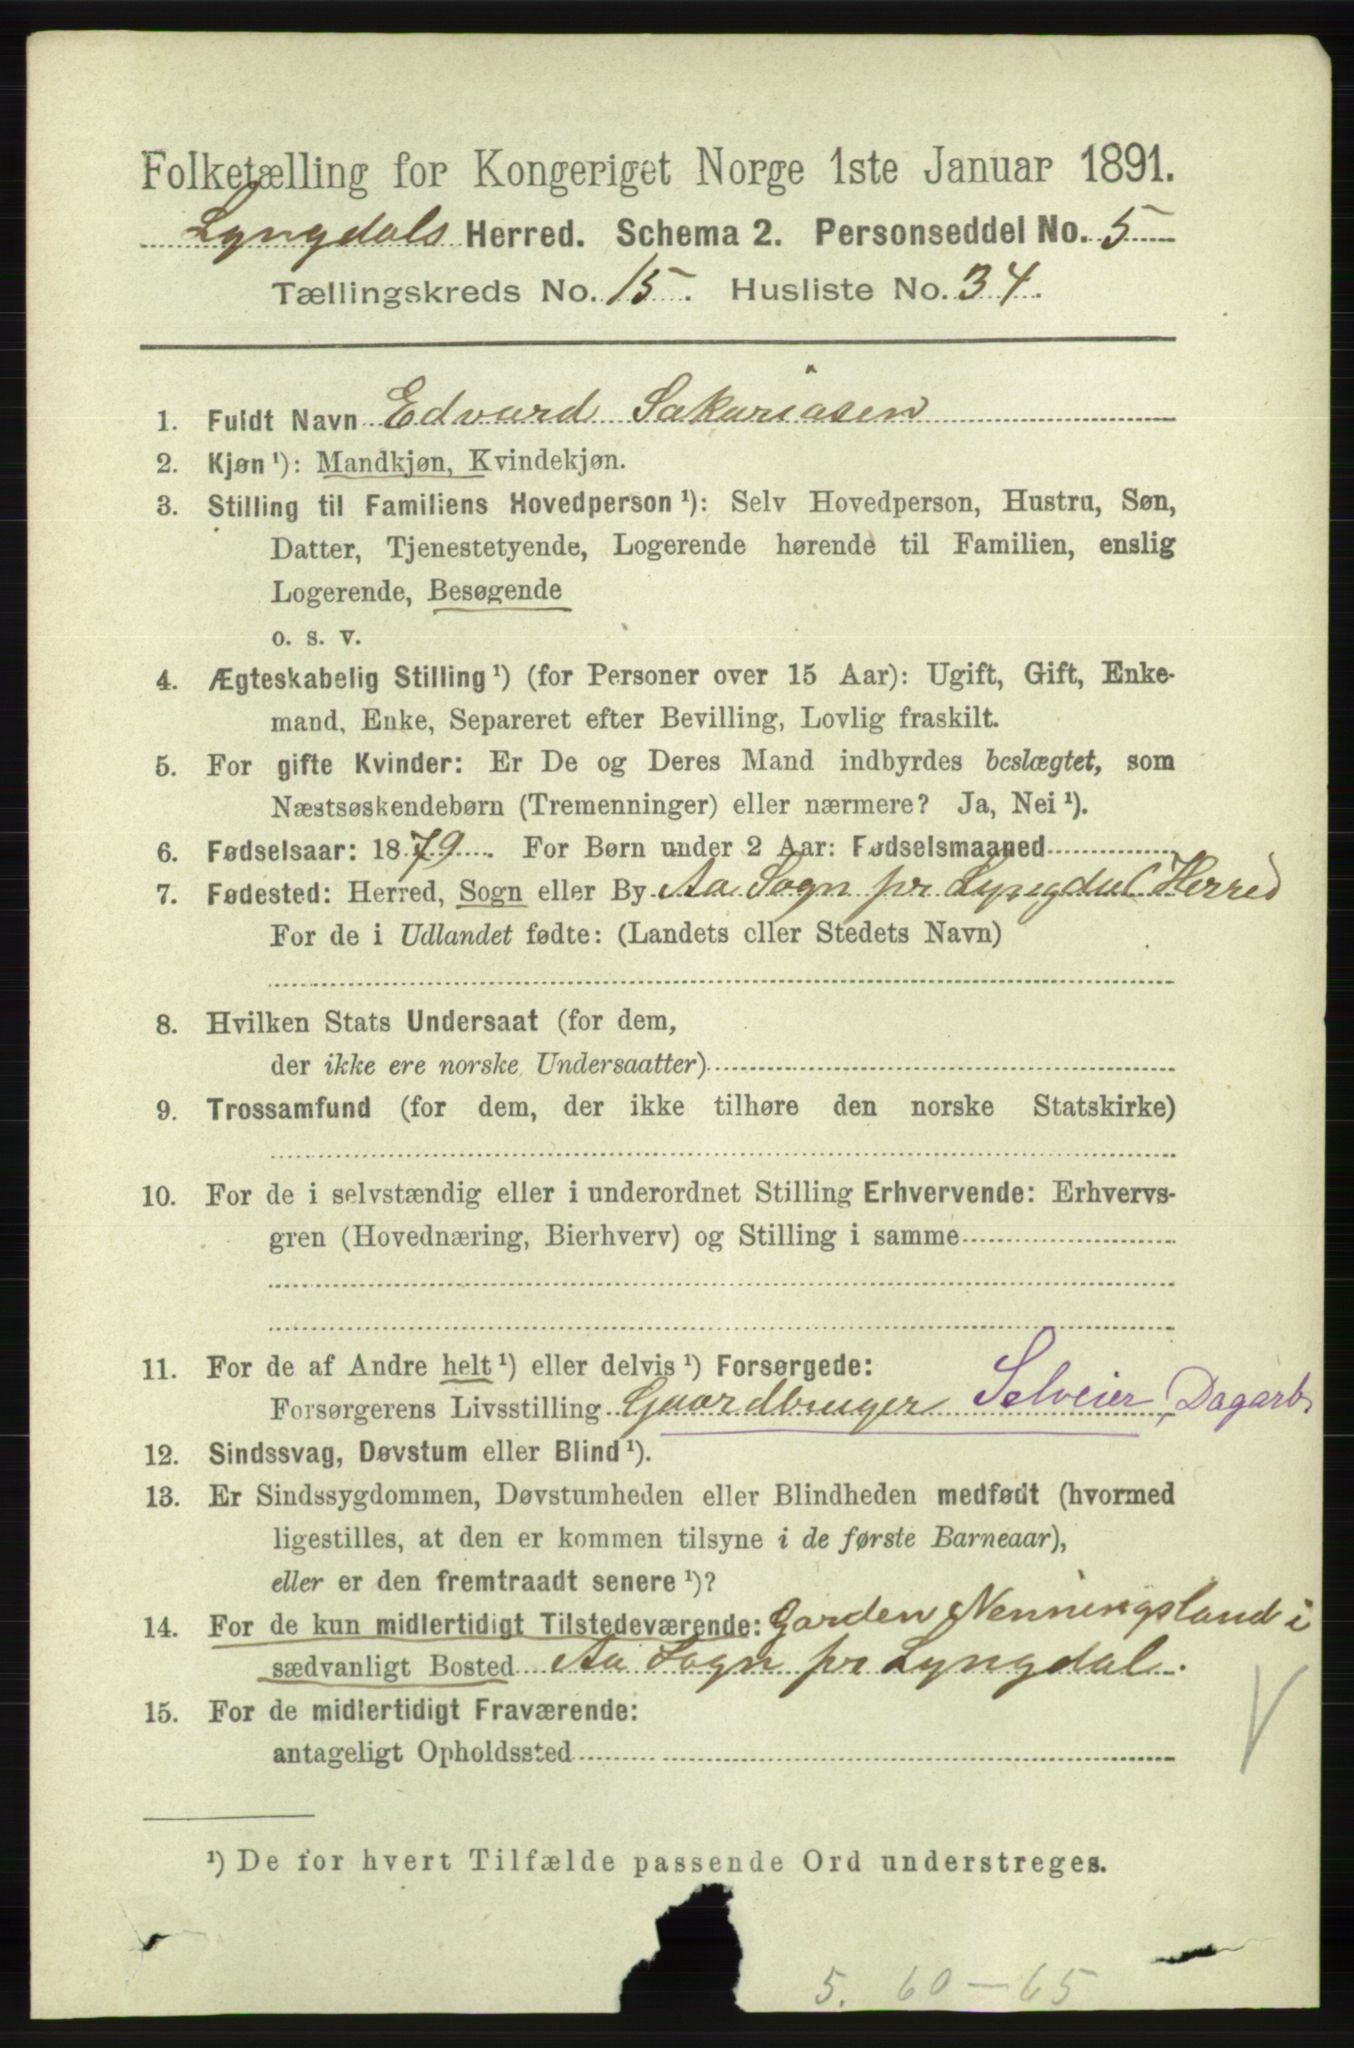 Folketælling for Kongeriget Norge 1ste Januar 1891.
Lyngdals Herred. Schema 2. Personseddel No. 5
Tællingskreds No. 15. Husliste No. 34.
1. Fuldt Navn Edvard Sakariasen
2. Kjøn ¹): Mandkjøn, Kvindekjøn.
3. Stilling til Familiens Hovedperson ¹): Selv Hovedperson, Hustru, Søn,
Datter, Tjenestetyende, Logerende hørende til Familien, enslig
Logerende, Besøgende
o. s. v.
4. Ægteskabelig Stilling ¹) (for Personer over 15 Aar): Ugift, Gift, Enke-
mand, Enke, Separeret efter Bevilling, Lovlig fraskilt.
5. For gifte Kvinder: Er De og Deres Mand indbyrdes beslægtet, som
Næstsøskendebørn (Tremenninger) eller nærmere? Ja, Nei ¹).
6. Fødselsaar: 1879. For Børn under 2 Aar: Fødselsmaaned
7. Fødested: Herred, Sogn eller By Aa Sogn pr Lyngdal Herred
For de i Udlandet fødte: (Landets eller Stedets Navn)
8. Hvilken Stats Undersaat (for dem,
der ikke ere norske Undersaatter)
9. Trossamfund (for dem, der ikke tilhøre den norske Statskirke)
10. For de i selvstændig eller i underordnet Stilling Erhvervende: Erhvervs-
gren (Hovednæring, Bierhverv) og Stilling i samme
11. For de af Andre helt ¹) eller delvis ¹) Forsørgede:
Forsørgerens Livsstilling Gaardbruger Selveier, Dagarb.
12. Sindssvag, Døvstum eller Blind ¹).
13. Er Sindssygdommen, Døvstumheden eller Blindheden medfødt (hvormed
ligestilles, at den er kommen tilsyne i de første Barneaar),
eller er den fremtraadt senere ¹)?
14. For de kun midlertidigt Tilstedeværende: Garden Nenningsland i
sædvanligt Bosted Aa Sogn pr Lyngdal.
15. For de midlertidigt Fraværende:
antageligt Opholdssted
¹) De for hvert Tilfælde passende Ord understreges.
5. 60-65